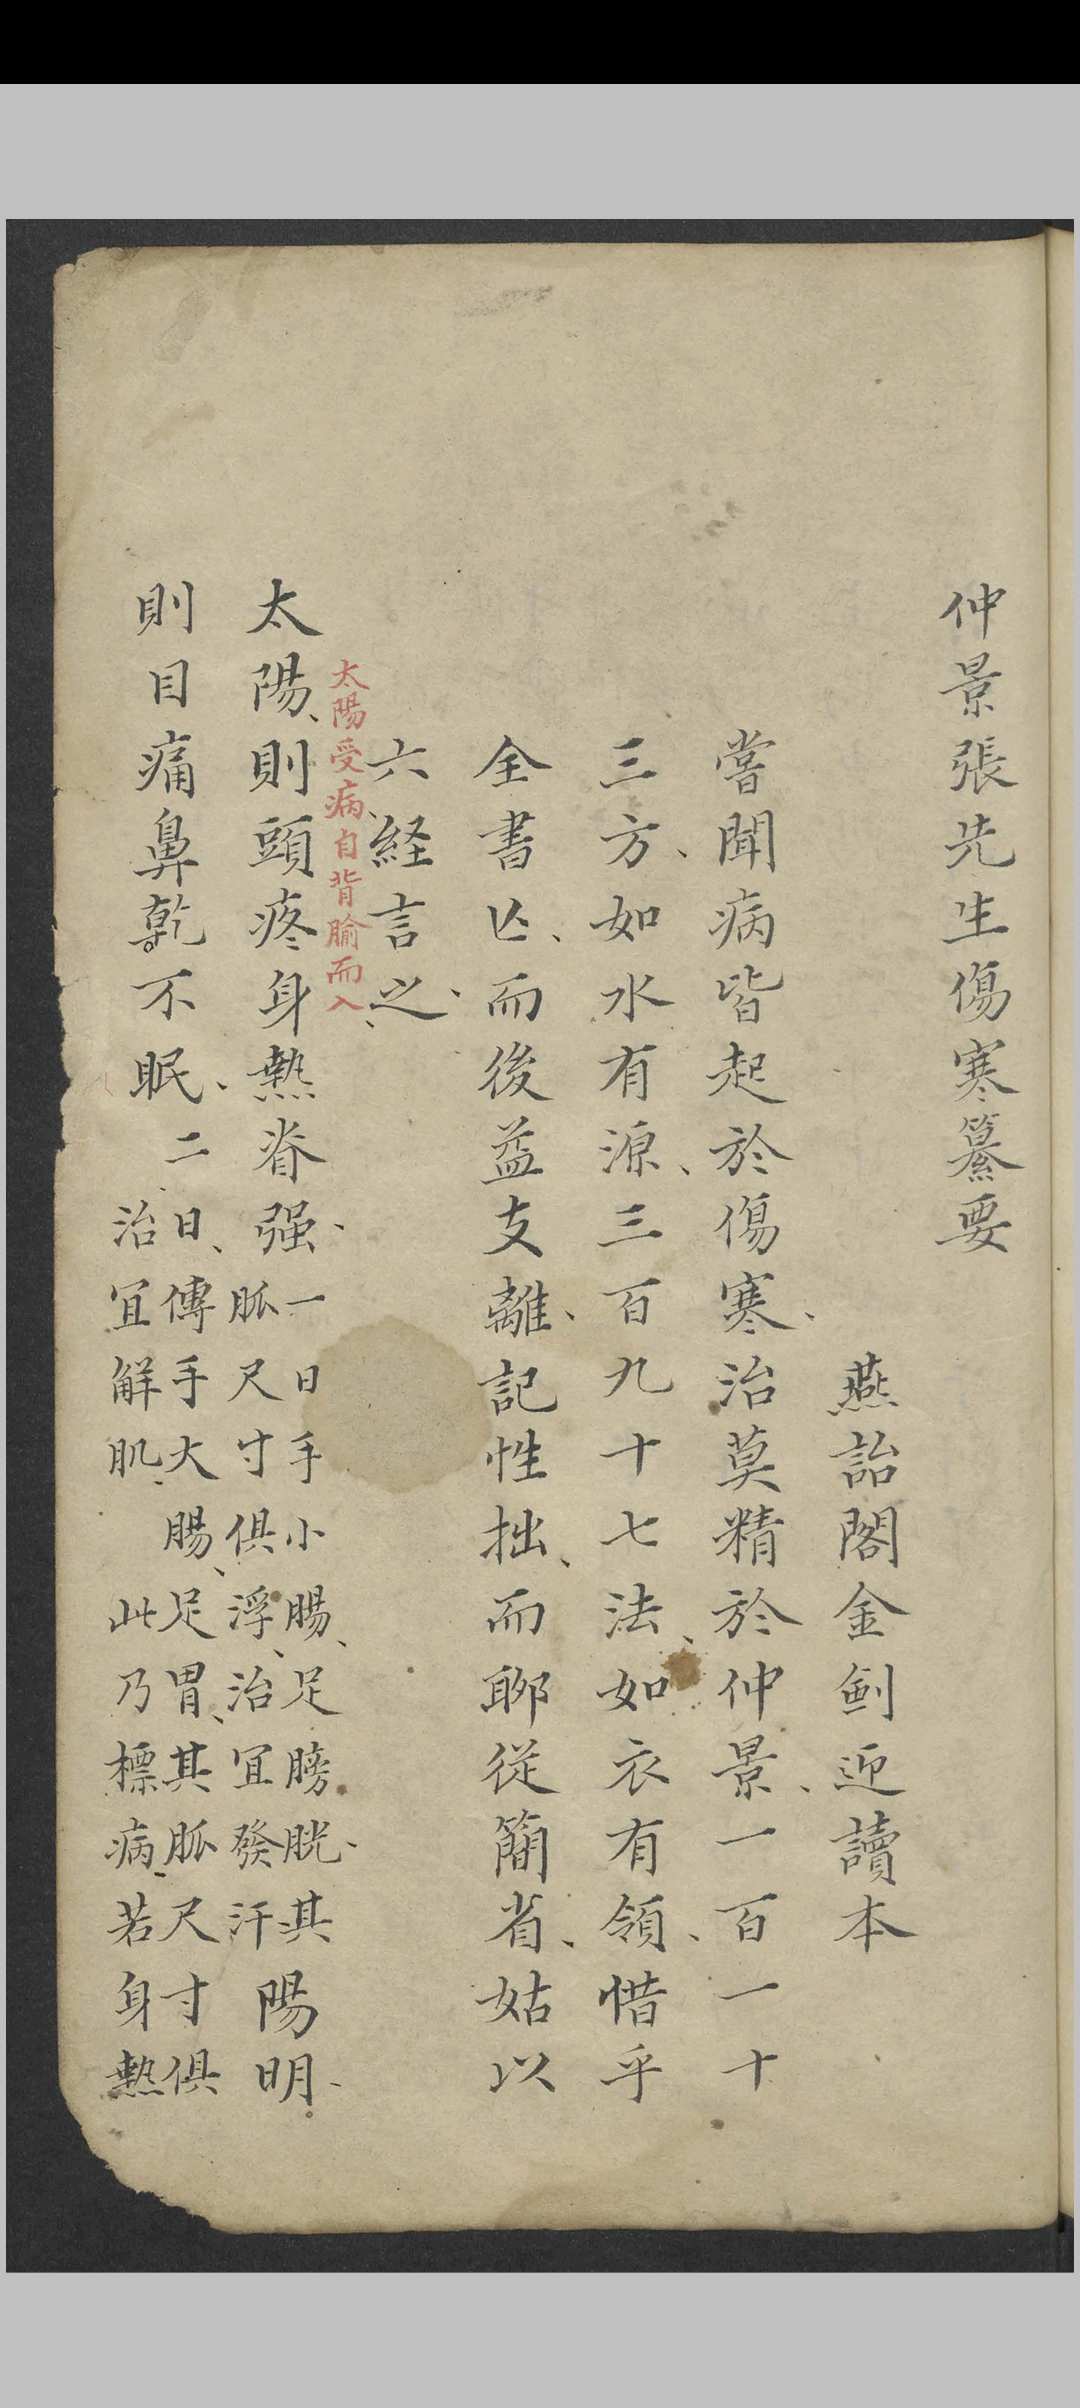 仲景張先生傷寒纂要
燕詒閣金劍迎讀本
嘗聞病皆起於傷寒、治莫精於仲景、一百一十
三方、如水有源、三百九十七法、如衣有領、惜乎
全書亾、而後益支離、記性拙、而聊從簡省、姑以
六経言之、
太陽受病、自背腧而入、
太陽、則頭疼身熱脊强、一日手小腸、足膀胱、其
脈尺寸俱浮、治宜發汗陽明、
則目痛鼻乾不眠、二日、傳手大腸、足胃、其脈尺寸俱
治宜解肌、此乃標病、若身熱